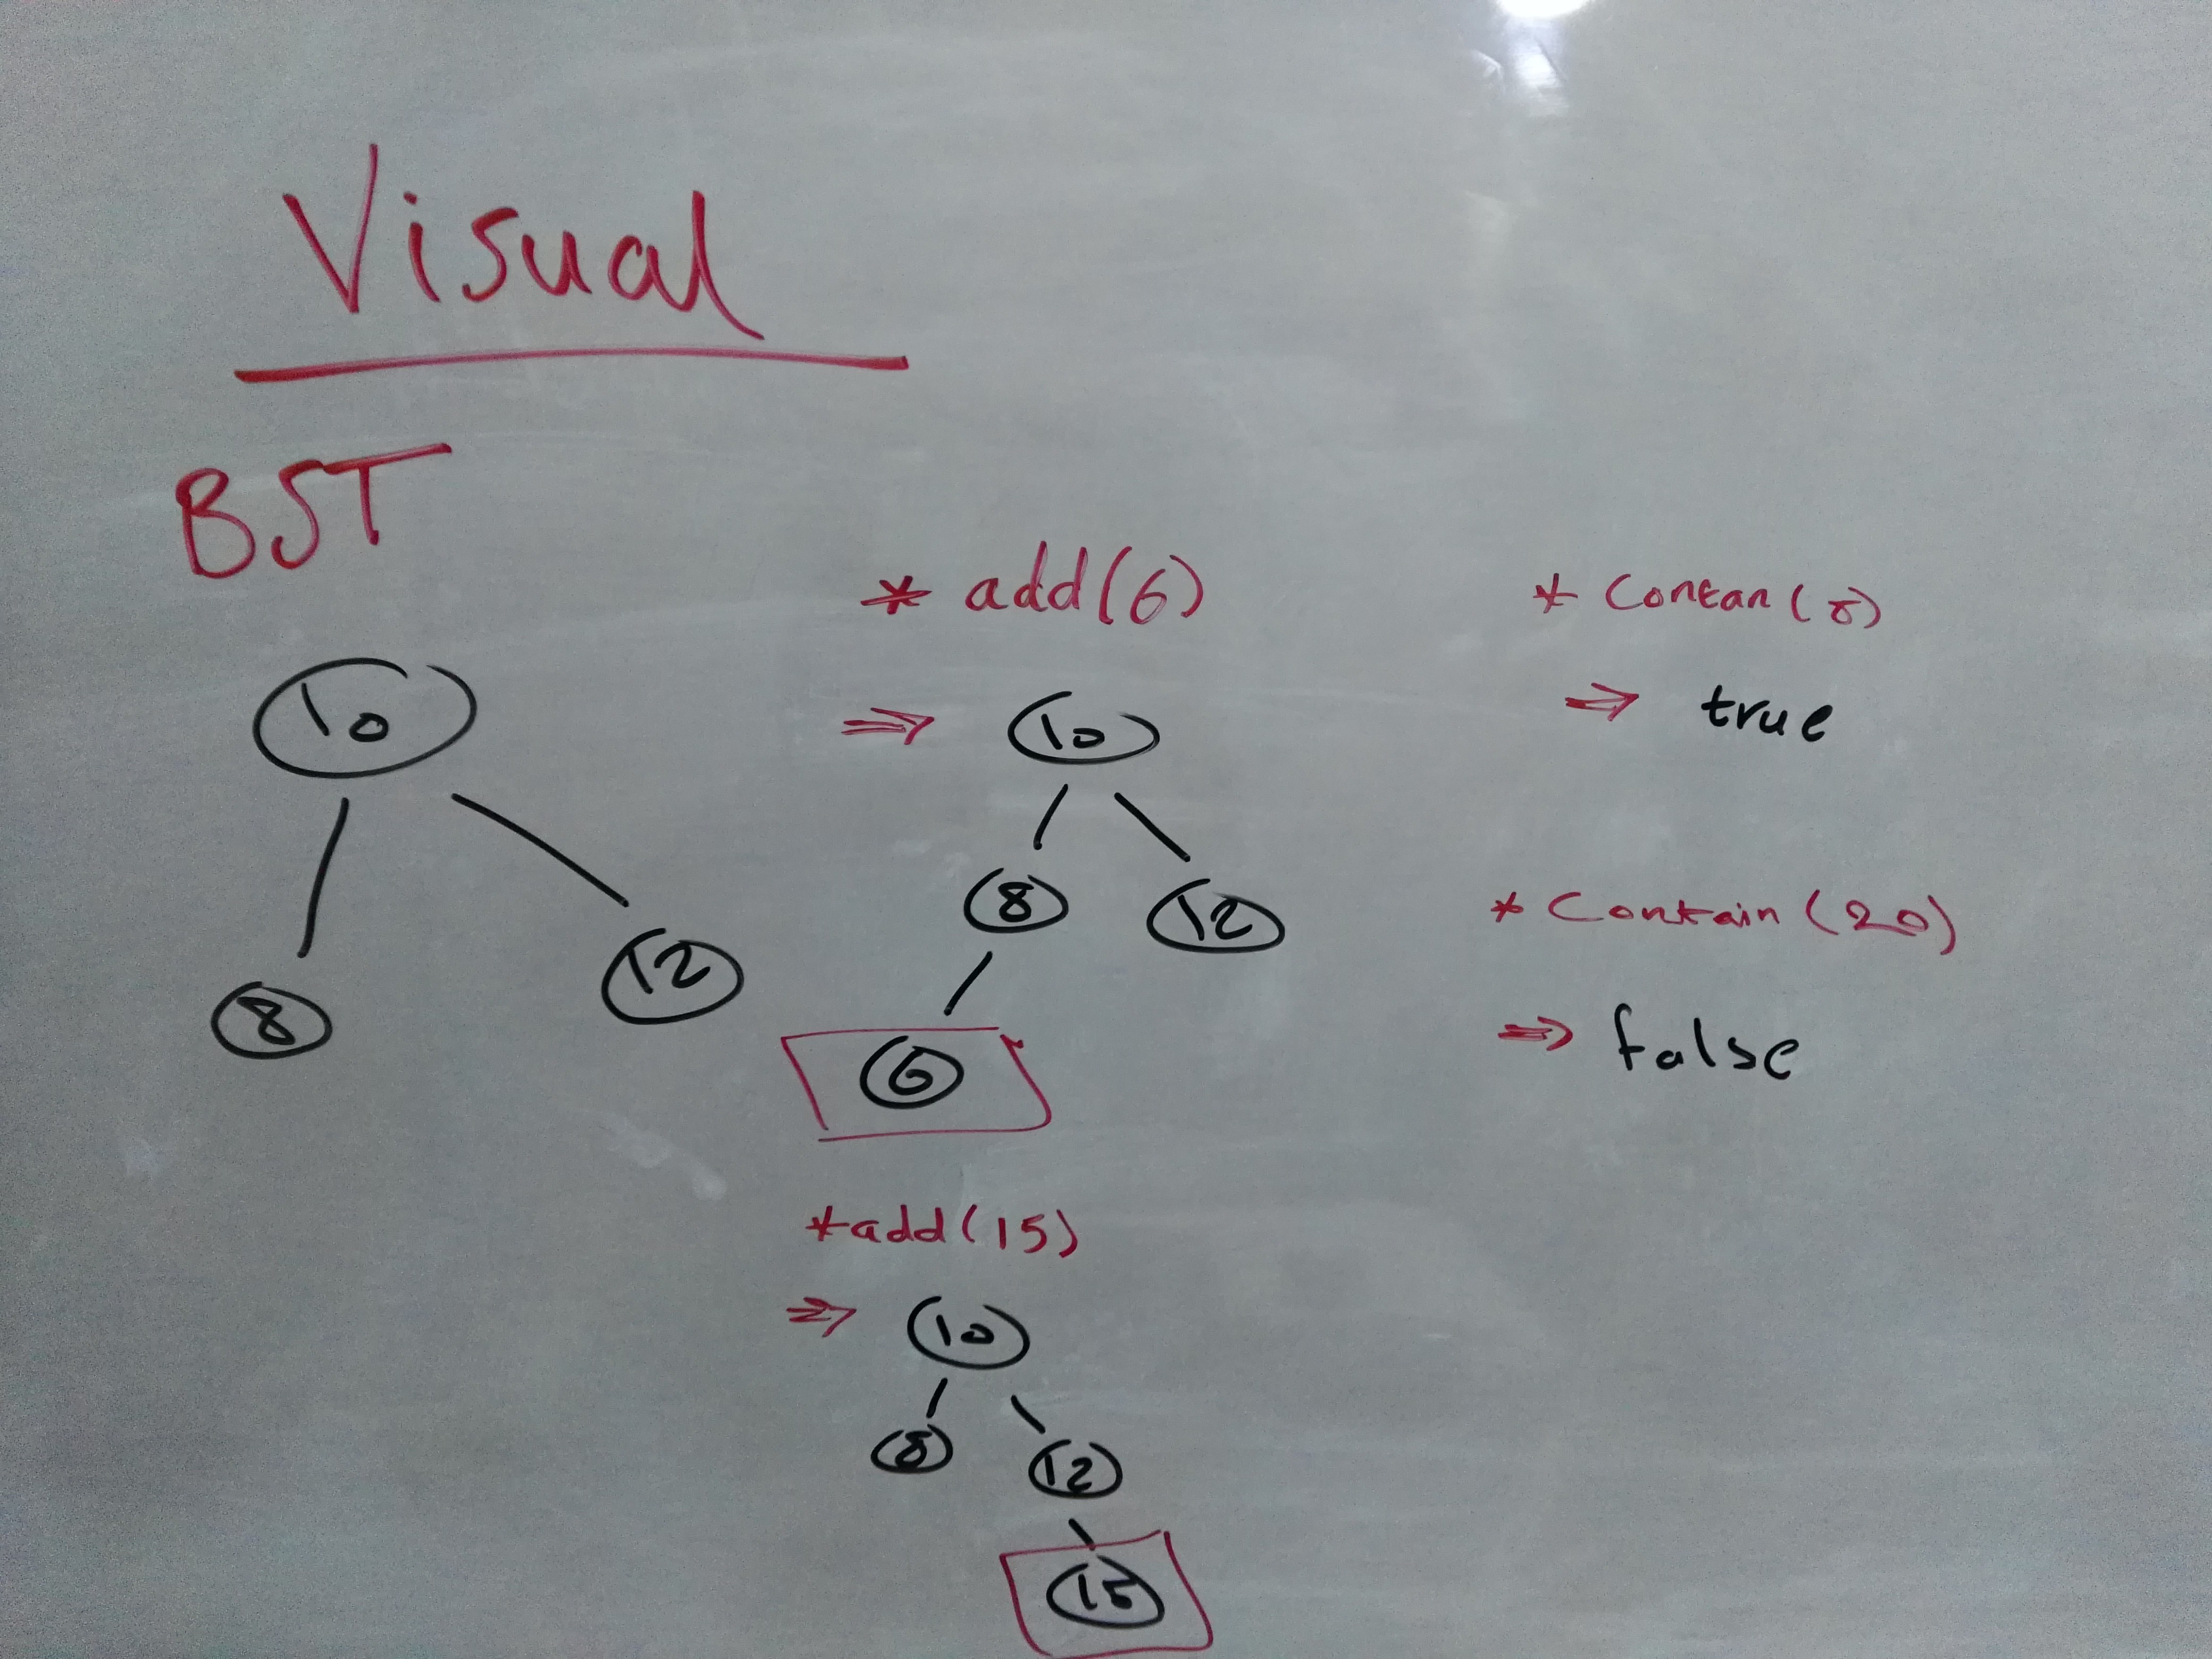 Visual
BST
10
8
12
* add(6)
⇒ 10
8
12
6
* add(15)
⇒ 10
8
12
15
* Contan(8)
⇒ true
* Contain(20)
⇒ false